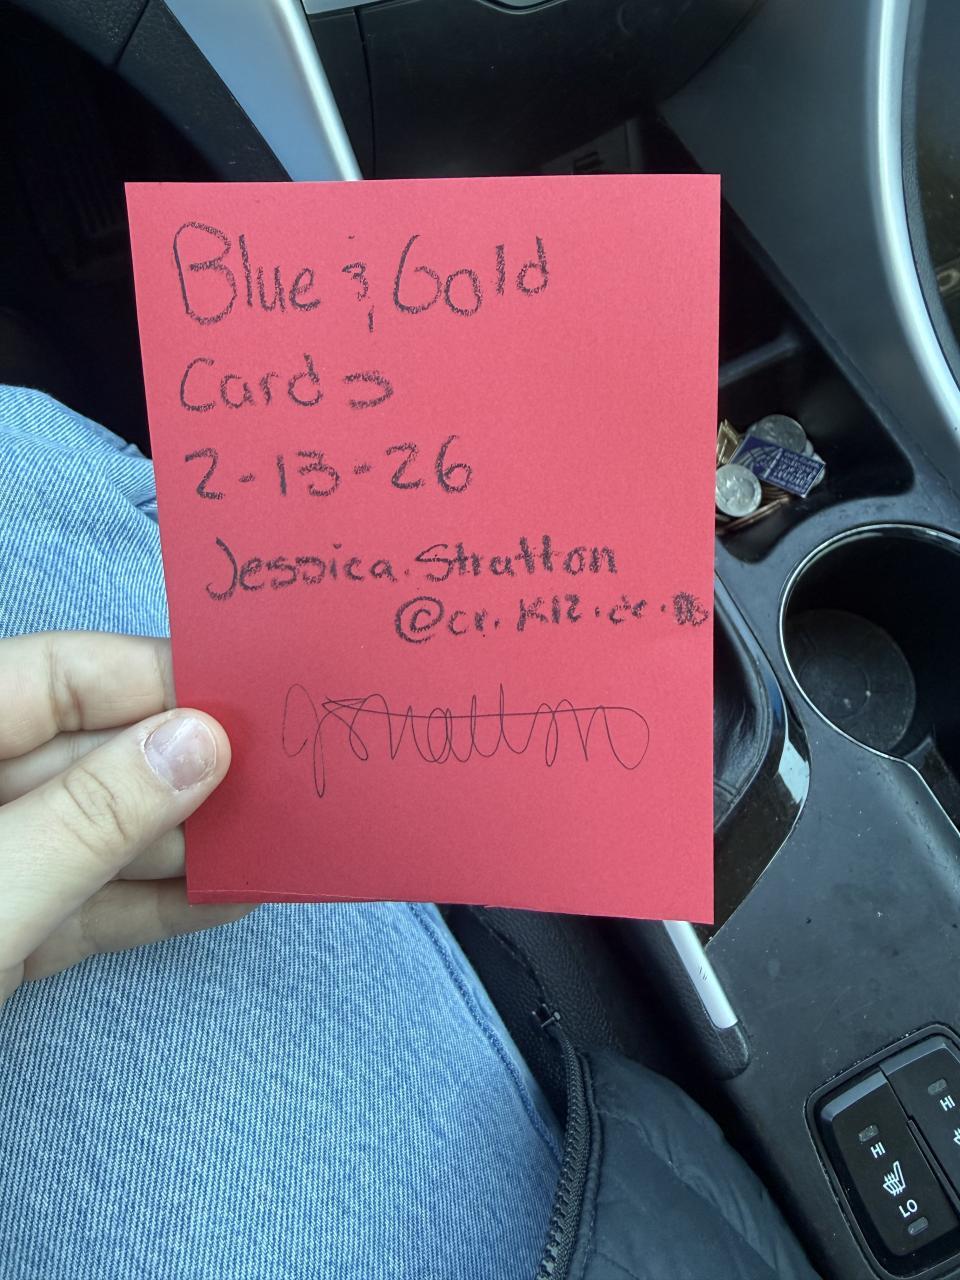 Blue & Gold
Cards
2-13-26
Jessica.Stratton
@cr.k12.de.us
JStratton
HI
HI
LO